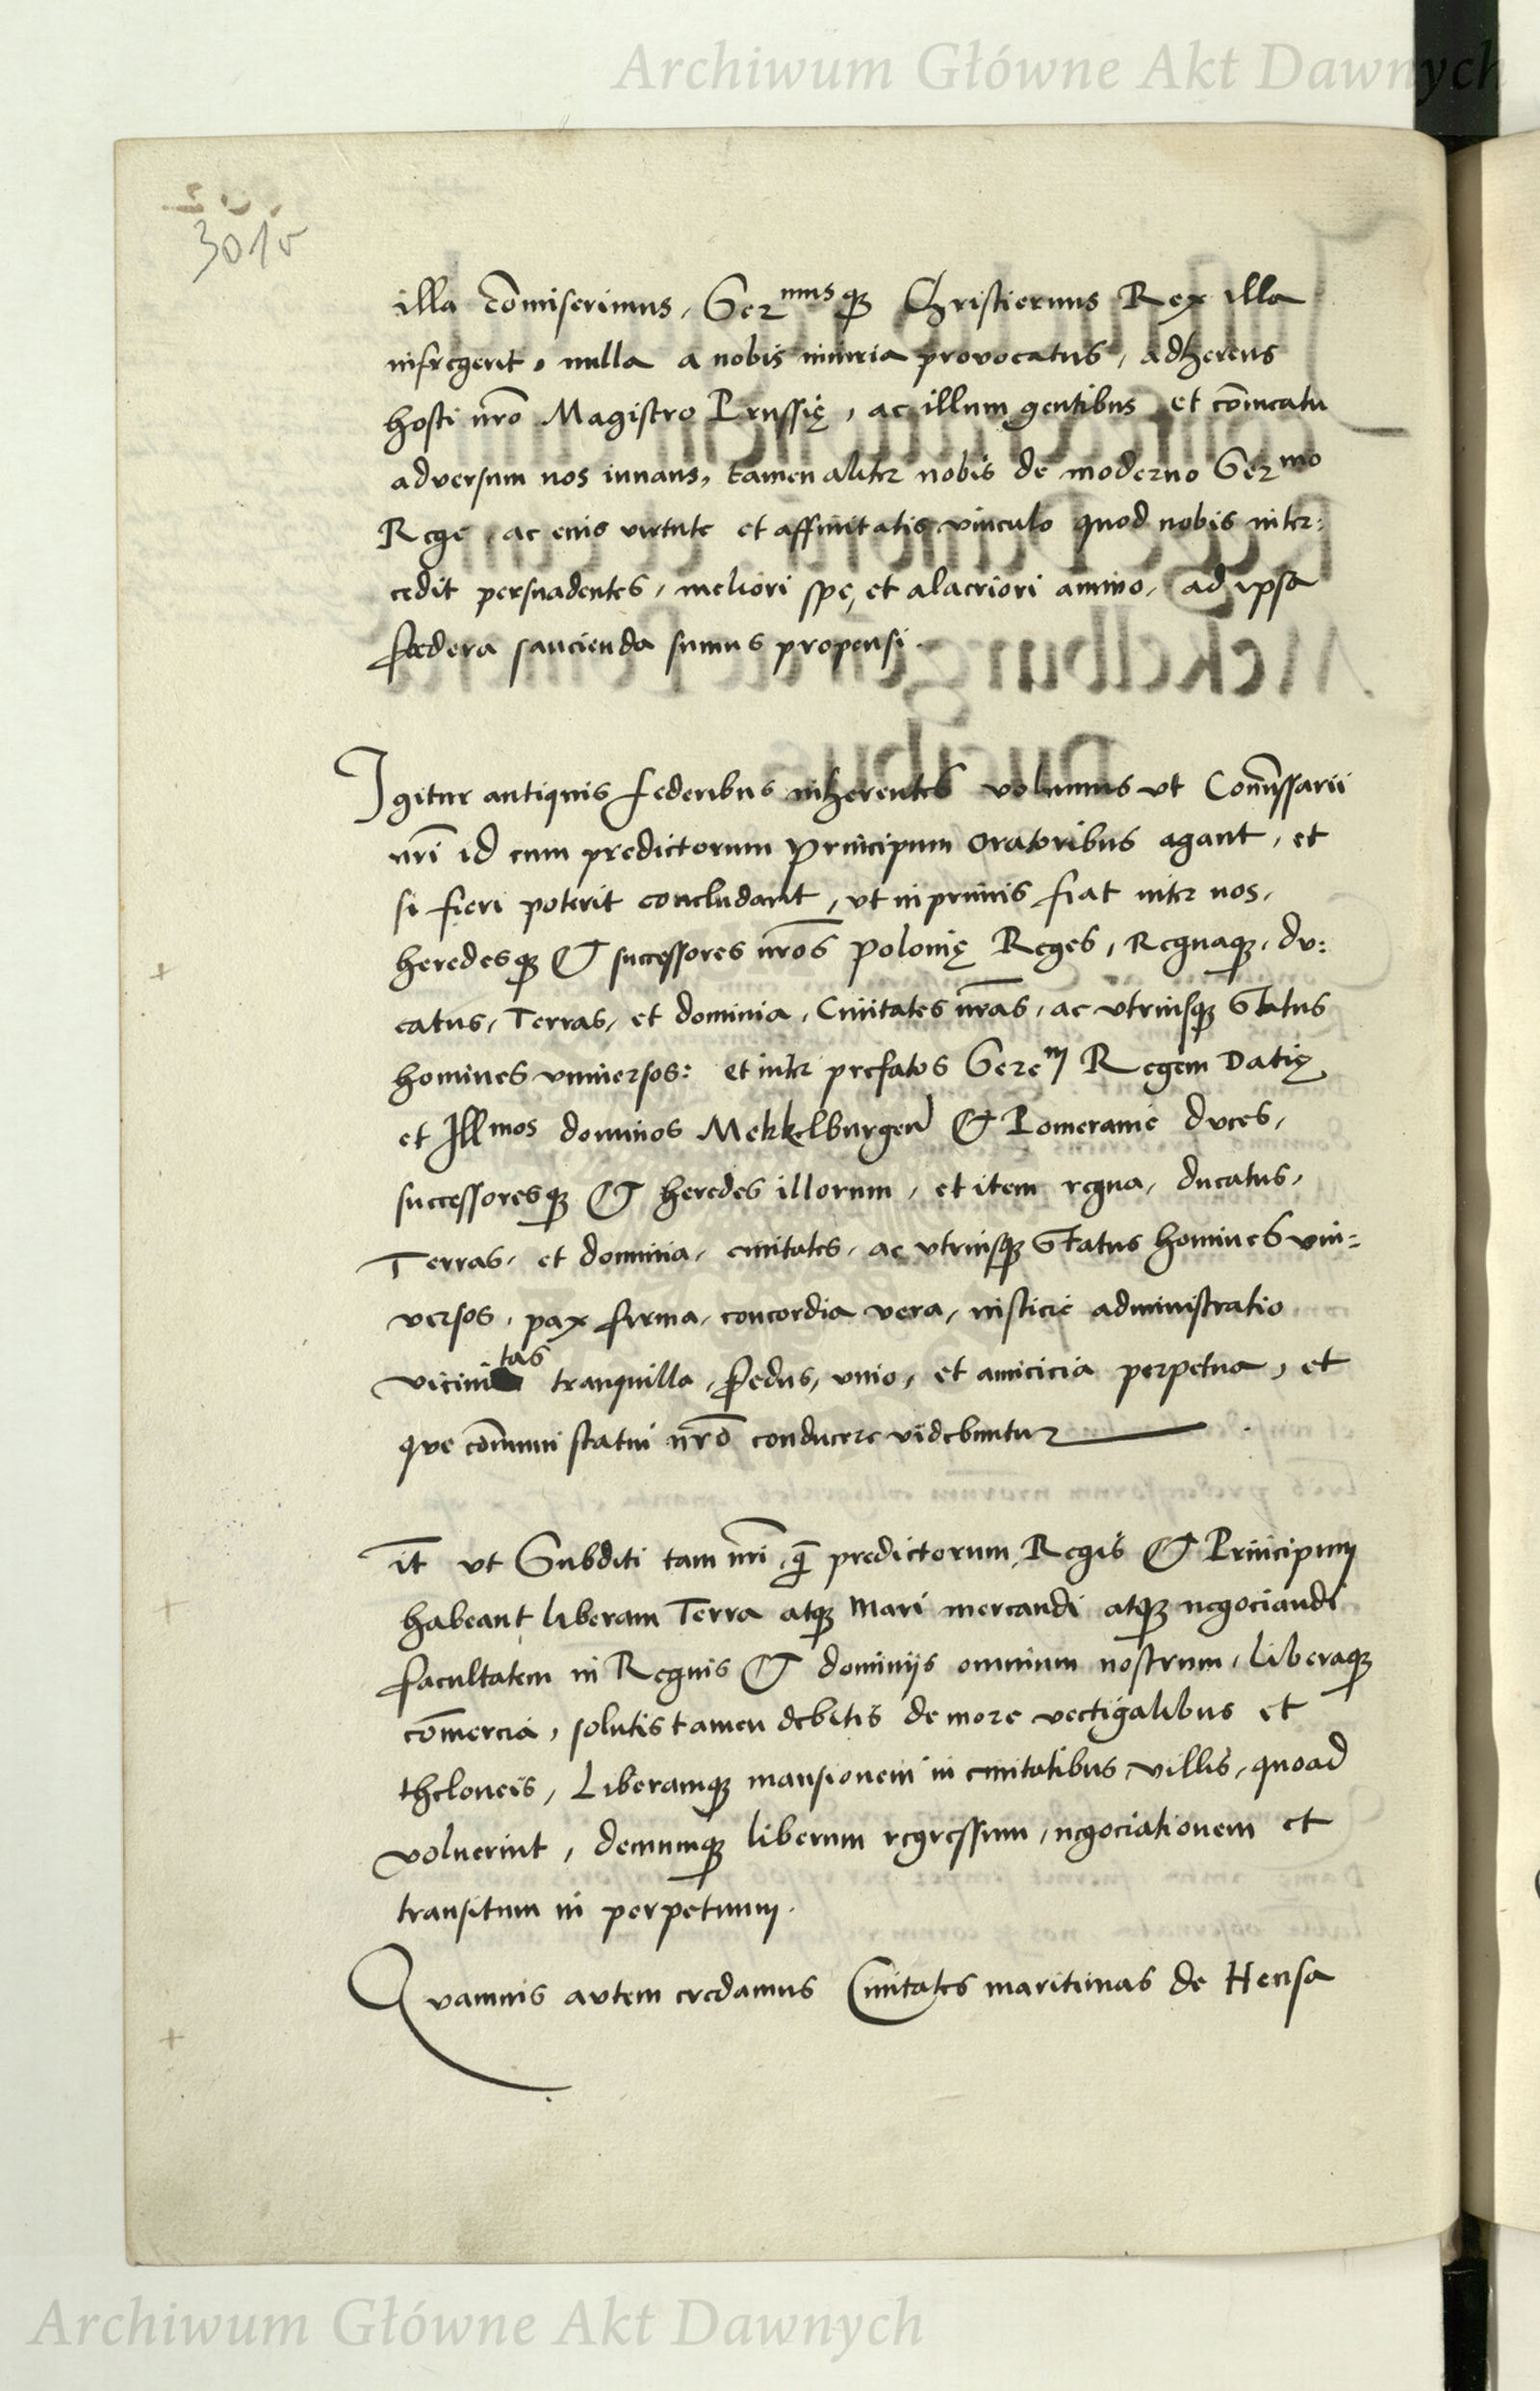 Archiwum Główne Akt Dawnych
301v
illa com̃iserimus, Serᵐᵘˢqꝫ Christiernus Rex illa
infregerit, nulla a nobis iniuria provocatus, adherens
hosti nr̃o Magistro Prussię, ac illum gentibus et com̃eatu
adversum nos iuvans, tamen aliter nobis de moderno Serᵐᵒ
Rege, ac eius virtute et affinitatis vinculo quod nobis inter:
cedit persuadentes, meliori spe, et alacriori animo, ad ipsa
fœdera sancienda sumus propensi.
Igitur antiquis federibus inherentes volumus vt Com̃issarii
nr̃i id cum predictorum principum oratoribus agant, et
si fieri poterit concludant, vt inprimis fiat inter nos,
heredesqꝫ & successores nr̃os Polonię Reges, Regnaqꝫ, du:
catus, Terras, et dominia, Ciuitates nr̃as, ac vtriusqꝫ Status
homines vniuersos: et inter prefatos Serᵉᵐ Regem Datię
et Illmos dominos Mekkelburgen̄ & Pomeranie duces,
successoresqꝫ & heredes illorum, et item regna, ducatus,
Terras, et dominia, ciuitates, ac vtriusqꝫ Status homines vni:
versos, pax firma, concordia vera, iusticie administratio
vicinitas tranquilla, fedus, vnio, et amicicia perpetua, et
que com̃uni statui nr̃o conducere videbuntur
it̄ vt Subditi tam nr̃i, q̃ predictorum Regis & Principum
habeant liberam Terra atqꝫ Mari mercandi atqꝫ negociandi
facultatem in Regnis & dominijs omnium nostrum, liberaqꝫ
com̃ercia, solutis tamen debitis de more vectigalibus et
theloneis, Liberamqꝫ mansionem in ciuitatibus, villis, quoad
voluerint, demumqꝫ liberum regressum, negociationem et
transitum in perpetuum.
Quamuis autem credamus Ciuitates maritimas de Hensa
Archiwum Główne Akt Dawnych